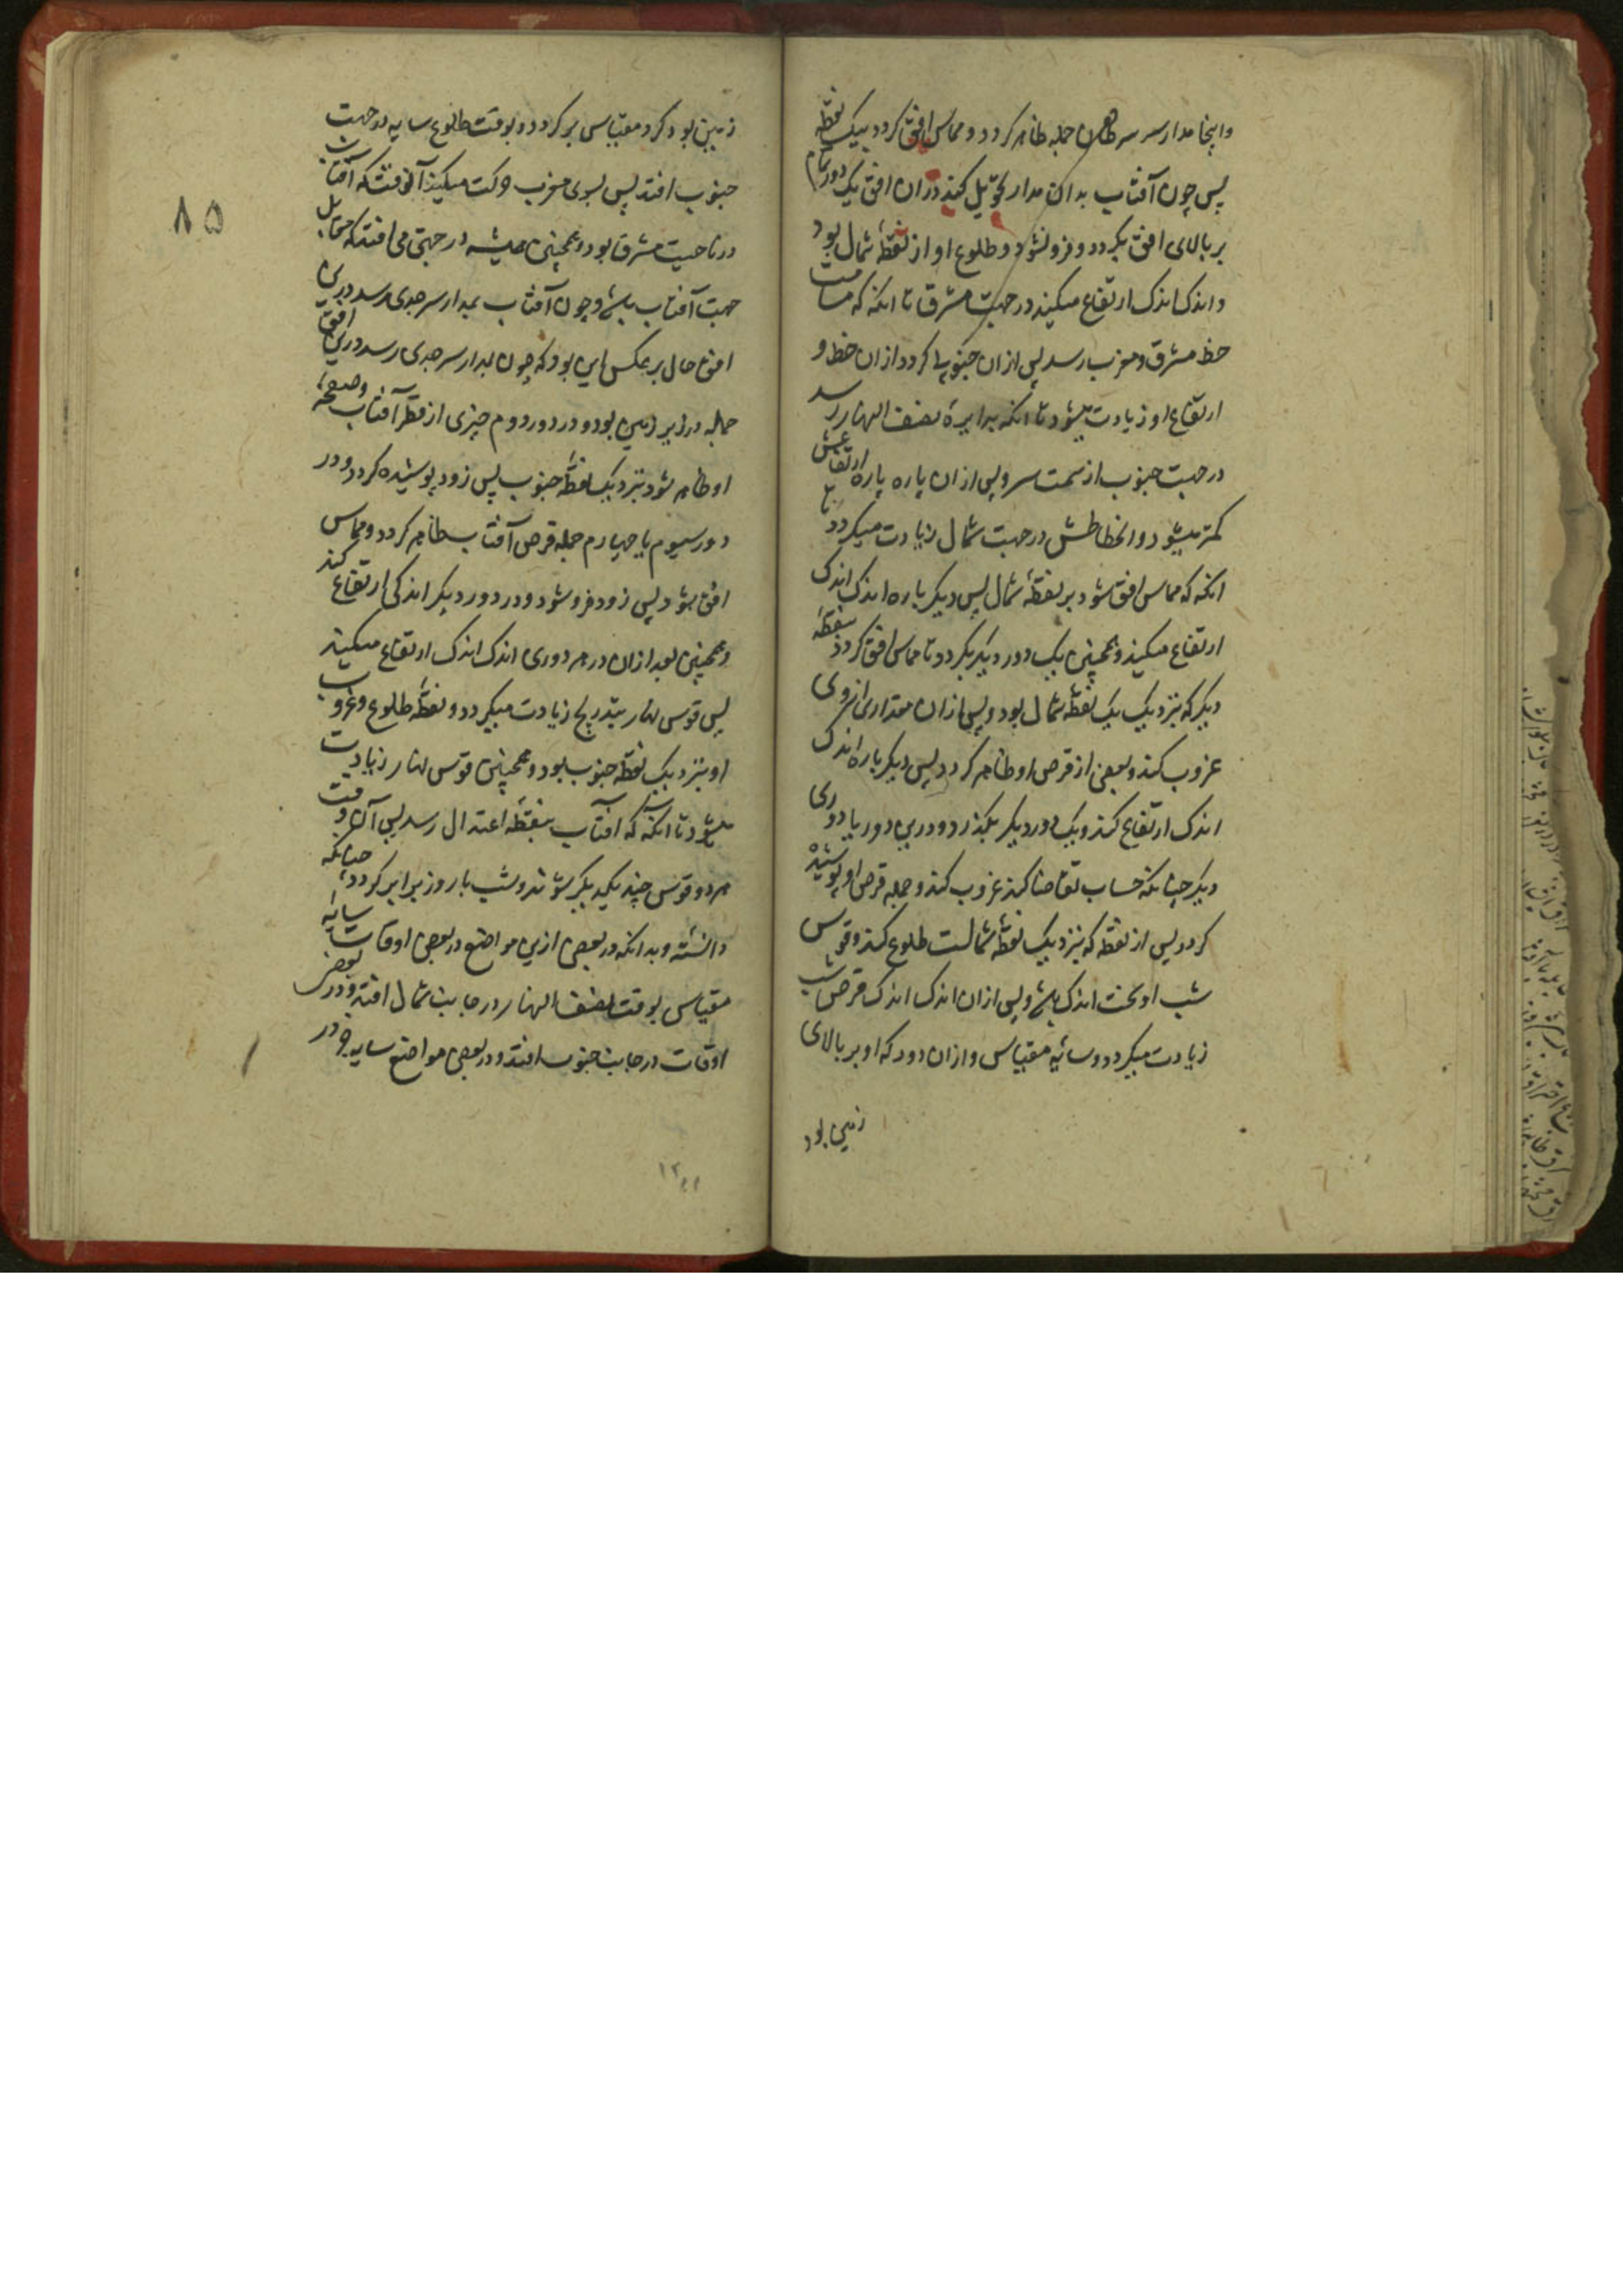 واینجا مدار سر سرطان جمله ظاهر کردد و مماس افق کردد بیک نقطه
پس چون آفتاب بدان مدار تحویل کند دران افق یک دور تمام
بر بالای افق بکردد و فرو نشود و طلوع او از نقطهٔ شمال بود
و اندک اندک ارتفاع میکند در جهت مشرق تا انکه که مسامت
خط مشرق و مغرب رسد پس ازان جنوبی کردد ازان خط و
ارتفاع او زیادت میشود تا انکه بدایرهٔ نصف النهار رسد
در جهت جنوب از سمت سر و پس ازان پاره پاره ارتفاعش
کمتر میشود و انحطاطش در جهت شمال زیادت میکردد تا
انکه که مماس افق شود بر نقطهٔ شمال پس دیکر باره اندک اندک
ارتفاع میکند و همچنین یک دور دیکر بکردد تا مماس افق کردد بنقطهٔ
دیکر که نزدیک بیک نقطهٔ شمال بود و پس ازان مقداری از وی
غروب کند و بعضی از قرص او ظاهر کردد پس دیکر باره اندک
اندک ارتفاع کند و یک دور دیکر بکذرد و درین دور یا دوری
دیکر چنانکه حساب تقاضا کند غروب کند و جمله قرص او پوشیده
کردد پس از نقطه که نزدیک نقطهٔ شمالست طلوع کند و قوس
شب او سخت اندک باشد و پس ازان اندک اندک قوس شب
زیادت میکردد و سایهٔ مقیاس و ازان دور که او بر بالای
زمین بود
زمین بود کرد مقیاس بر کردد و بوقت طلوع سایه در جهت
جنوب افتد پس بسوی مغرب حرکت میکند آنوقت که آفتاب
در ناحیت مشرق بود و همچنین همیشه در جهتی می افتد که مقابل
جهت آفتاب باشد و چون آفتاب بمدار سر جدی رسد درین
افق حال بر عکس این بود که چون بمدار سر جدی رسد درین افق
جمله در زیر زمین بود و در دور دوم چیزی از قطر آفتاب و صفحهٔ
او ظاهر شود نزدیک نقطهٔ جنوب پس زود پوشیده کردد و در
دور سیوم یا چهارم جمله قرص آفتاب ظاهر کردد و مماس
افق شود پس زود فرو شود و در دور دیکر اندکی ارتفاع کند
و همچنین بعد ازان در هر دوری اندک اندک ارتفاع میکند
پس قوس نهار بتدریج زیادت میکردد و نقطهٔ طلوع و غروب
او نزدیک نقطه جنوب بود و همچنین قوس نهار زیادت
میشود تا انکه که آفتاب بنقطهٔ اعتدال رسد پس آن وقت
هر دو قوس چند یکدیکر شوند و شب با روز برابر کردد چنانکه
دانسته و بدانکه در بعضی ازین مواضع در بعضی اوقات سایهٔ
مقیاس بوقت نصف النهار در جانب شمال افتد و در بعضی
اوقات در جانب جنوب افتد و در بعضی مواضع سایه جز در
۸۵